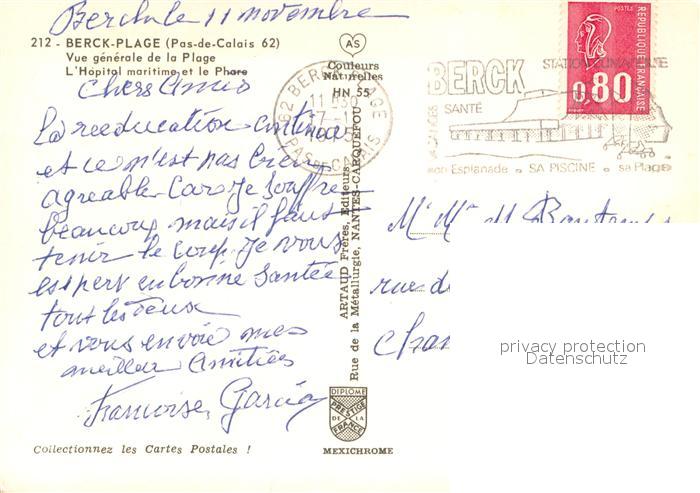 Berck le 11 novembre
212 - BERCK-PLAGE (Pas-de-Calais 62)
Vue générale de la Plage
L'Hôpital maritime et le Phare
Chers Amis
La reeducation continue
et ce n'est pas bien
agreable Car Je souffre
beaucoup mais il faut
tenir le coup. Je vous
espert en bonne Santée
tout les deux
et vous envoie mes
meilleur Amitiées
Francoise, Garcia
Collectionnez les Cartes Postales !
AS
Couleurs
Naturelles
HN 55
ARTAUD Frères, Editeurs
Rue de la Métallurgie, NANTES-CARQUEFOU
DIPLOME
PRESTIGE
DE LA
FRANCE
MEXICHROME
62 BERCK PLAGE
PAS DE CALAIS
BERCK
SANTÉ
son Esplanade • SA PISCINE • sa Plage
POSTES
REPUBLIQUE FRANÇAISE
0,80
Mr Me
rue
privacy protection
Datenschutz